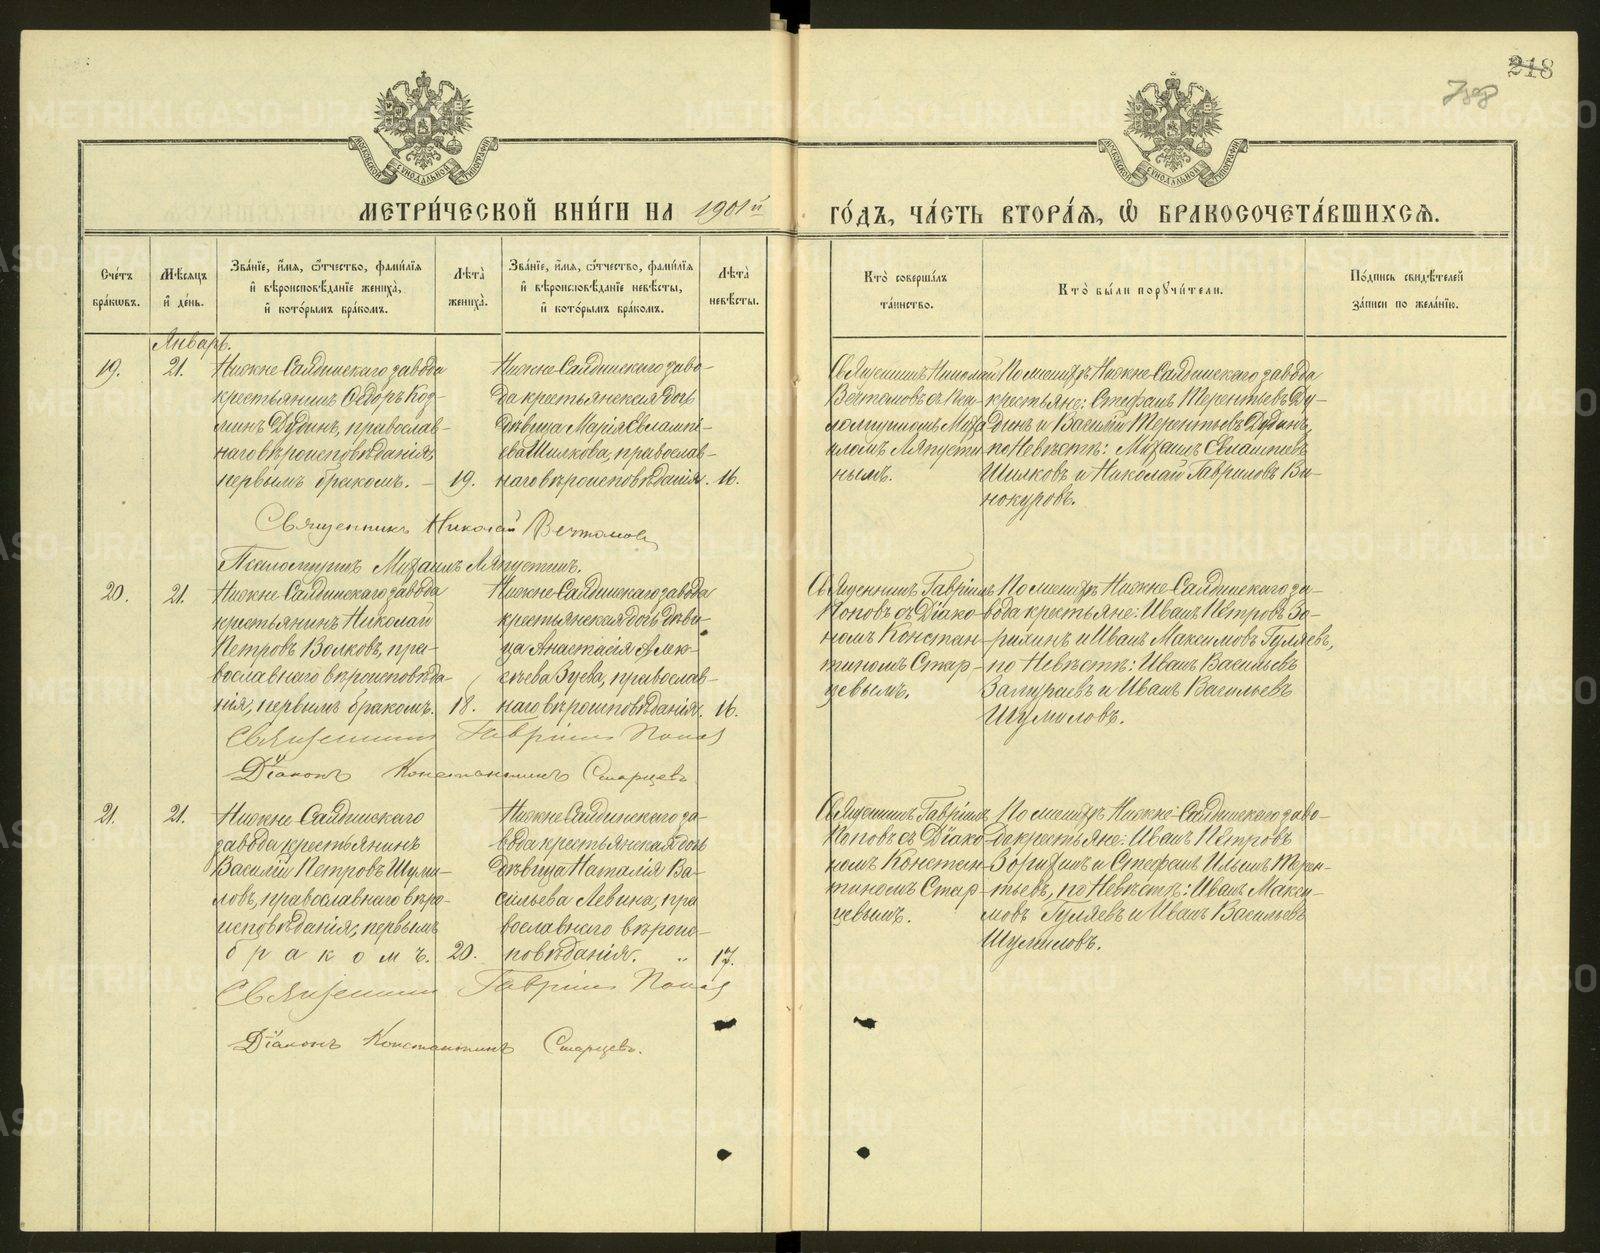 218
МЕТРИ́ЧЕСКОЙ КНИ́ГИ НА 1901й ГО́ДЪ, ЧА́СТЬ ВТОРА́Я, Ѿ БРАКОСОЧЕТА́ВШИХСЯ.
МОСКОВСКОЙ СѴНОДАЛЬНОЙ ТИПОГРАФІИ
МОСКОВСКОЙ СѴНОДАЛЬНОЙ ТИПОГРАФІИ
Сче́тъ
бра́ковъ.
Мѣ́сяцъ
и҆ де́нь.
Зва́нїе, и҆́мя, ѻ҆́тчество, фами́лїя
и҆ вѣроисповѣ́данїе жениха̀,
и҆ кото́рымъ бра́комъ.
Лѣта̀
жениха̀.
Зва́нїе, и҆́мя, ѻ҆́тчество, фами́лїя
и҆ вѣроисповѣ́данїе невѣ́сты,
и҆ кото́рымъ бра́комъ.
Лѣта̀
невѣ́сты.
Кто̀ соверша́лъ
та́инство.
Кто̀ бы́ли поручи́тели.
По́дпись свидѣ́телей
за́писи по жела́нїю.
Январь.
19.
21.
Нижне-Салдинскаго завода
крестьянинъ Ѳедоръ Коз-
минъ Дудинъ, православ-
наго вѣроисповѣданія,
первымъ бракомъ. –
19.
Нижне-Салдинскаго заво-
да крестьянская дочь
дѣвица Марія Евлампі-
ева Шилкова, православ-
наго вѣроисповѣданія.
16.
Священникъ Николай
Вечтомовъ съ пса-
ломщикомъ Миха-
иломъ Ляпусти-
нымъ.
По женихѣ Нижне-Салдинскаго завода
крестьяне: Стефанъ Терентьевъ Ду-
динъ и Василій Терентьевъ Дудинъ,
по Невѣстѣ: Михаилъ Евлампіевъ
Шилковъ и Николай Гавриловъ Ви-
нокуровъ.
Священникъ Николай Вечтомовъ
Псаломщикъ Михаилъ Ляпустинъ.
20.
21.
Нижне-Салдинскаго завода
крестьянинъ Николай
Петровъ Волковъ, пра-
вославнаго вѣроисповѣда-
нія, первымъ бракомъ.
18.
Нижне-Салдинскаго завода
крестьянская дочь дѣви-
ца Анастасія Алек-
сѣева Зуева, православ-
наго вѣроисповѣданія.
16.
Священникъ Гавріилъ
Поповъ съ Діако-
номъ Констан-
тиномъ Стар-
цевымъ.
По женихѣ Нижне-Салдинскаго за-
вода крестьяне: Иванъ Петровъ Зо-
рихинъ и Иванъ Максимовъ Гуляевъ,
по Невѣстѣ: Иванъ Васильевъ
Замураевъ и Иванъ Васильевъ
Шумиловъ.
Священникъ Гавріилъ Поповъ
Діаконъ Константинъ Старцевъ
21.
21.
Нижне-Салдинскаго
завода крестьянинъ
Василій Петровъ Шуми-
ловъ, православнаго вѣро-
исповѣданія, первымъ
бракомъ.
20.
Нижне-Салдинскаго за-
вода крестьянская дочь
дѣвица Наталія Ва-
сильева Левина, пра
вославнаго вѣроис-
повѣданія. „
17.
Священникъ Гавріилъ
Поповъ съ Діако-
номъ Констан-
тиномъ Стар-
цевымъ.
По женихѣ Нижне-Салдинскаго заво-
да крестьяне: Иванъ Петровъ
Зорихинъ и Стефанъ Ильинъ Терен-
тьевъ, по Невѣстѣ: Иванъ Макси-
мовъ Гуляевъ и Иванъ Васильевъ
Шумиловъ.
Священникъ Гавріилъ Поповъ
Діаконъ Константинъ Старцевъ.
METRIKI.GASO-URAL.RU